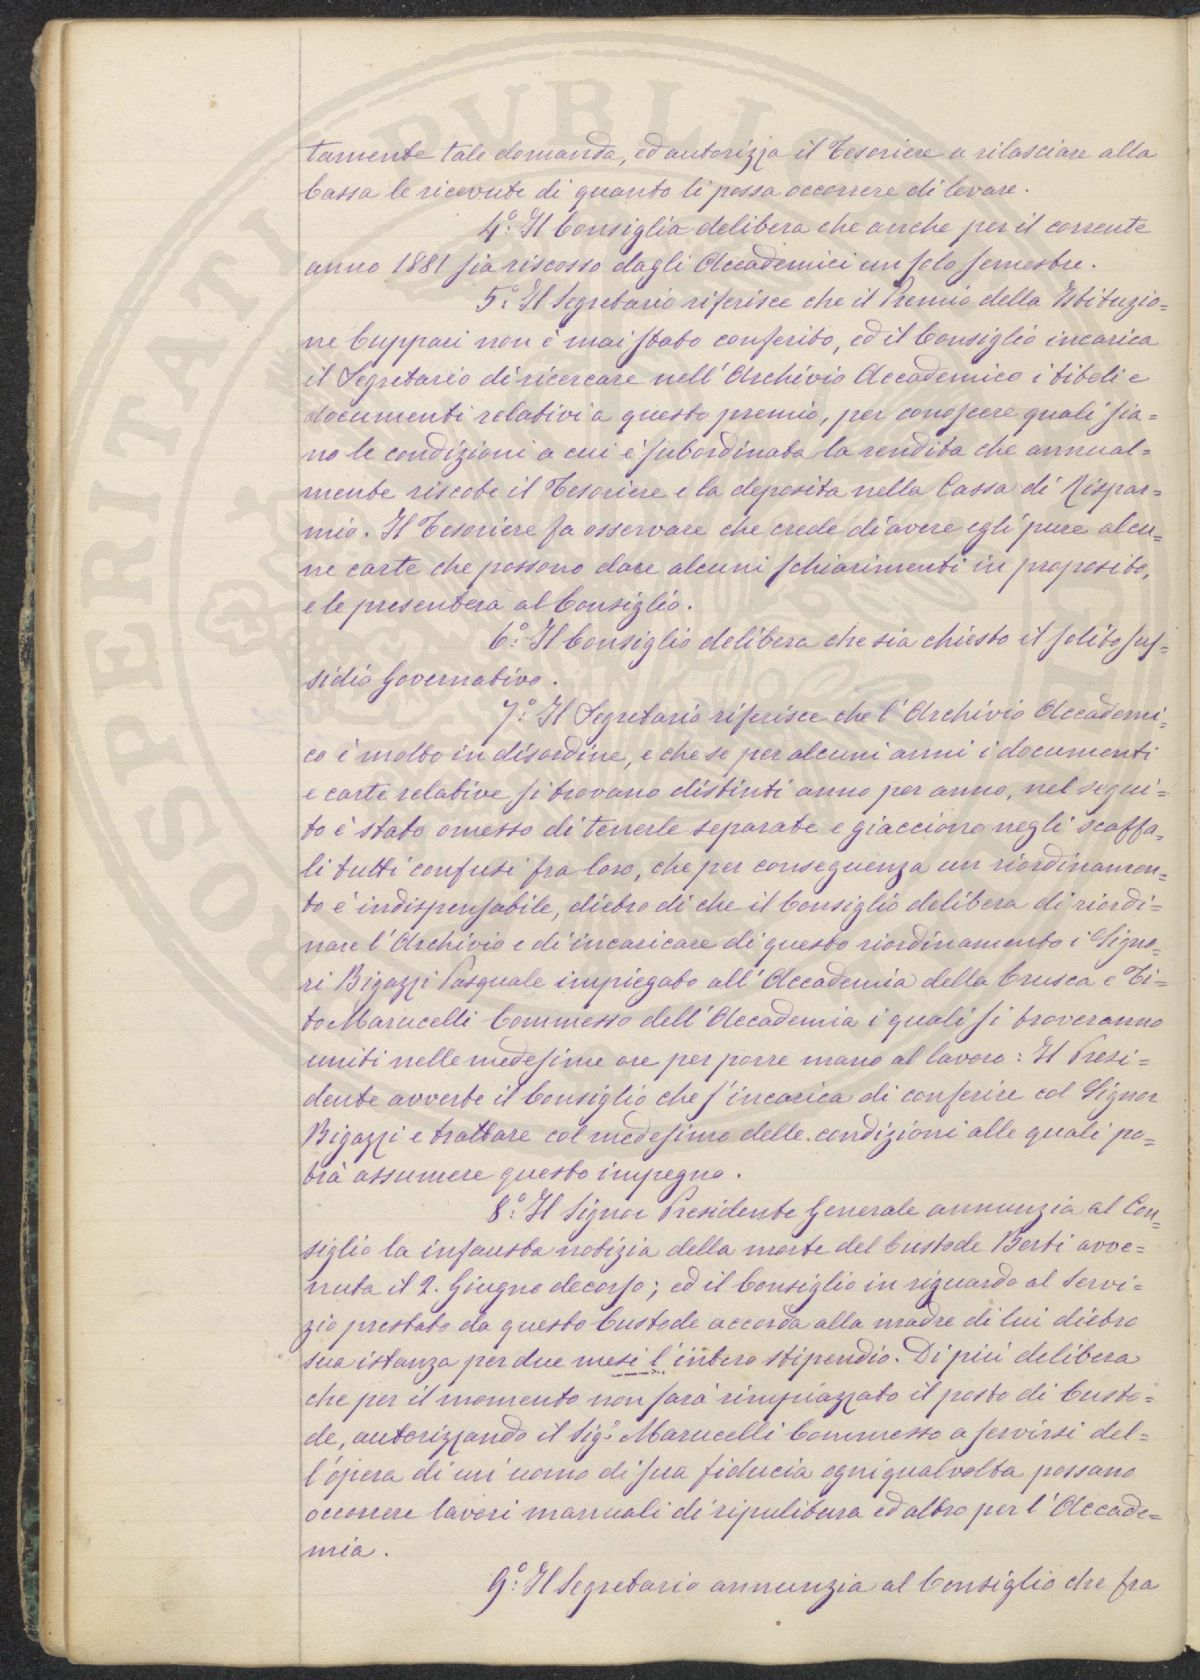 tamente tale domanda, ed autorizza il Tesoriere a rilasciare alla
Cassa le ricevute di quanto li possa occorrere di levare.
4.° Il Consiglio delibera che anche per il corrente
anno 1881 sia riscosso dagli Accademici un solo semestre.
5.° Il Segretario riferisce che il Premio della Istituzio=
ne Cuppari non è mai stato conferito, ed il Consiglio incarica
il Segretario di ricercare nell'Archivio Accademico i titoli e
documenti relativi a questo premio, per conoscere quali sia=
no le condizioni a cui è subordinata la rendita che annual=
mente riscote il Tesoriere e la deposita nella Cassa di Rispar=
mio. Il Tesoriere fa osservare che crede di avere egli pure alcu=
ne carte che possono dare alcuni schiarimenti in proposito,
e le presenterà al Consiglio.
6.° Il Consiglio delibera che sia chiesto il solito sus=
sidio Governativo.
7.° Il Segretario riferisce che l'Archivio Accademi=
co è molto in disordine, e che se per alcuni anni i documenti
e carte relative si trovano distinti anno per anno, nel segui=
to è stato omesso di tenerle separate e giacciono negli scaffa=
li tutti confusi fra loro, che per conseguenza un riordinamen=
to è indispensabile, dietro di che il Consiglio delibera di riordi=
nare l'Archivio e di incaricare di questo riordinamento i Signo=
ri Bigazzi Pasquale impiegato all'Accademia della Crusca e Ti=
to Marucelli Commesso dell'Accademia i quali si troveranno
uniti nelle medesime ore per porre mano al lavoro: Il Presi=
dente avverte il Consiglio che s'incarica di conferire col Signor
Bigazzi e trattare col medesimo delle condizioni alle quali po=
trà assumere questo impegno.
8.° Il Signor Presidente Generale annunzia al Con=
siglio la infausta notizia della morte del Custode Berti avve=
nuta il 2. Giugno decorso; ed il Consiglio in riguardo al servi=
zio prestato da questo Custode accorda alla madre di lui dietro
sua istanza per due mesi l'intero stipendio. Di più delibera
che per il momento non sarà rimpiazzato il posto di Custo=
de, autorizzando il Sig.r Marucelli Commesso a servirsi del=
l'opera di un'uomo di sua fiducia ogni qual volta possano
occorrere lavori manuali di ripulitura ed altro per l'Accade=
mia.
9.° Il Segretario annunzia al Consiglio che fra
PROSPERITATI PUBLICAE